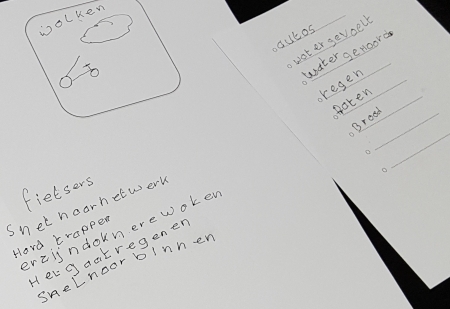 wolken
fietsers
snel naar het werk
Hard trappen
er zijn doknere woken
Het gaat regenen
snel naar binnen
autos
water gevoelt
water gehoord
regen
Daten
Brood